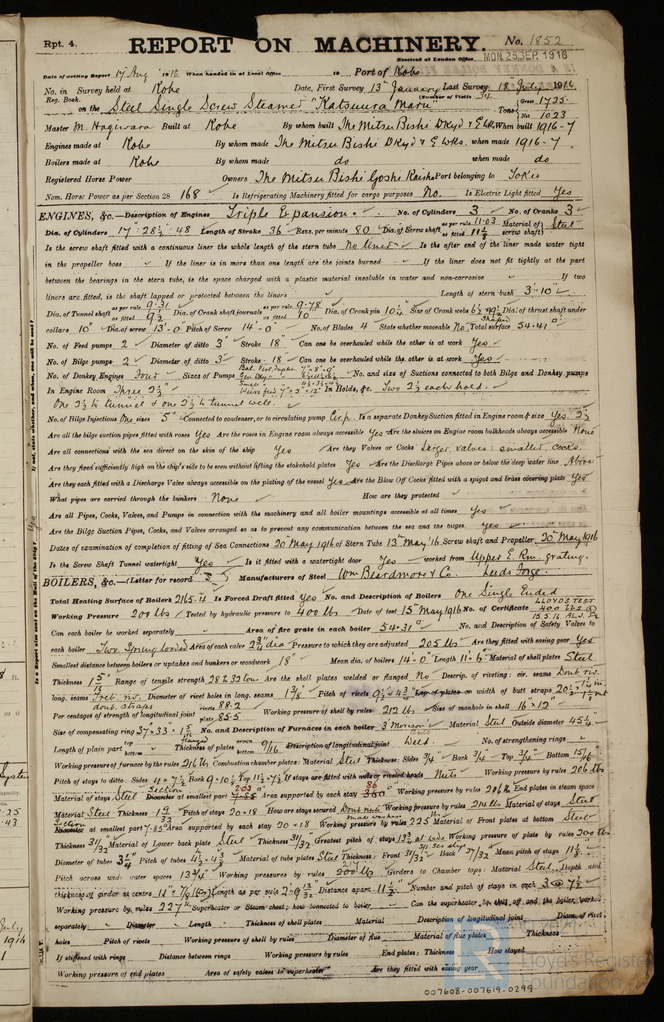 Rpt. 4. REPORT ON MACHINERY. No. 1852
Received at London Office MON. 25 SEP. 1916
Date of writing Report 17 Aug 1916 When handed in at Local Office 19 Port of Kobe
No. in Survey held at Kobe Date, First Survey 13 January Last Survey 18 July 1916
Reg. Book. (Number of Visits 34
on the Steel Single Screw Steamer "Katsuura Maru" Tons Gross 1725 Net 1023
Master M. Hagiwara Built at Kobe By whom built The Mitsu Bishi DKyd & E Wks When built 1916-7
Engines made at Kobe By whom made The Mitsu Bishi DKyd & E. Wks. when made 1916-7
Boilers made at Kobe By whom made do when made do
Registered Horse Power Owners The Mitsu Bishi Goshi Kaisha Port belonging to Tokio
Nom. Horse Power as per Section 28 168 Is Refrigerating Machinery fitted for cargo purposes No. Is Electric Light fitted Yes
ENGINES, &c.—Description of Engines Triple Expansion No. of Cylinders 3 No. of Cranks 3
Dia. of Cylinders 17" 28½" 48 Length of Stroke 36 Revs. per minute 80 Dia. of Screw shaft as per rule 11.03 as fitted Material of screw shaft Steel
Is the screw shaft fitted with a continuous liner the whole length of the stern tube No liner Is the after end of the liner made water tight
in the propeller boss If the liner is in more than one length are the joints burned If the liner does not fit tightly at the part
between the bearings in the stern tube, is the space charged with a plastic material insoluble in water and non-corrosive If two
liners are fitted, is the shaft lapped or protected between the liners Length of stern bush 3'-10"
Dia. of Tunnel shaft as per rule 9.31 as fitted 9½ Dia. of Crank shaft journals as per rule 9.78 as fitted 10 Dia. of Crank pin 10¼ Size of Crank webs Dia. of thrust shaft under
collars 10" Dia. of screw 13'-0 Pitch of Screw 14'-0" No. of Blades 4 State whether moveable No Total surface 54.41
No. of Feed pumps 2 Diameter of ditto 3" Stroke 18" Can one be overhauled while the other is at work Yes
No. of Bilge pumps 2 Diameter of ditto 3" Stroke 18" Can one be overhauled while the other is at work Yes
No. of Donkey Engines Four Sizes of Pumps No. and size of Suctions connected to both Bilge and Donkey pumps
In Engine Room Three 2½" In Holds, &c. Two 2½ each hold.
One 2½ to tunnel & one 2½ to tunnel well.
No. of Bilge Injections One sizes 5" Connected to condenser, or to circulating pump Cir.p. Is a separate Donkey Suction fitted in Engine room & size Yes 2½
Are all the bilge suction pipes fitted with roses Yes Are the roses in Engine room always accessible Yes Are the sluices on Engine room bulkheads always accessible None
Are all connections with the sea direct on the skin of the ship Yes Are they Valves or Cocks Larger valves smaller cocks.
Are they fixed sufficiently high on the ship's side to be seen without lifting the stokehold plates Yes Are the Discharge Pipes above or below the deep water line Above
Are they each fitted with a Discharge Valve always accessible on the plating of the vessel Yes Are the Blow Off Cocks fitted with a spigot and brass covering plate Yes
What pipes are carried through the bunkers None How are they protected
Are all Pipes, Cocks, Valves, and Pumps in connection with the machinery and all boiler mountings accessible at all times Yes
Are the Bilge Suction Pipes, Cocks, and Valves arranged so as to prevent any communication between the sea and the bilges Yes
Dates of examination of completion of fitting of Sea Connections 20 May 1916 of Stern Tube 13 May '16 Screw shaft and Propeller 20 May 1916
Is the Screw Shaft Tunnel watertight Yes Is it fitted with a watertight door Yes worked from Upper E. Rm. grating.
BOILERS, &c.—(Letter for record S) Manufacturers of Steel Wm Beardmore & Co. Leeds Forge.
Total Heating Surface of Boilers 2165.4 Is Forced Draft fitted Yes No. and Description of Boilers One Single Ended
Working Pressure 200 lbs Tested by hydraulic pressure to 400 lbs Date of test 15 May 1916 No. of Certificate LLOYD'S TEST 400 LBS 15.5.16
Can each boiler be worked separately Area of fire grate in each boiler 54.31 No. and Description of Safety Valves to
each boiler Two Spring loaded Area of each valve 2¾ dia Pressure to which they are adjusted 205 lbs Are they fitted with easing gear Yes
Smallest distance between boilers or uptakes and bunkers or woodwork 18" Mean dia. of boilers 14'-0" Length 11'-6" Material of shell plates Steel
Thickness Range of tensile strength 28 & 32 ton Are the shell plates welded or flanged No Descrip. of riveting: cir. seams Doub. riv.
long. seams Treb. riv. doub. straps Diameter of rivet holes in long. seams Pitch of rivets Lap of plates or width of butt straps
Per centages of strength of longitudinal joint rivets 88.2 plate 85.5 Working pressure of shell by rules 212 lbs Size of manhole in shell 16" × 12"
Size of compensating ring No. and Description of Furnaces in each boiler 3 Morison's Material Steel Outside diameter
Length of plain part top bottom Thickness of plates crown bottom 9/16 Description of longitudinal joint Weld. No. of strengthening rings
Working pressure of furnace by the rules 216 lbs Combustion chamber plates: Material Steel Thickness: Sides ¾" Back ¾ Top ¾" Bottom 15/16"
Pitch of stays to ditto: Sides Back Top If stays are fitted with nuts or riveted heads Nuts Working pressure by rules 206 lbs
Material of stays Steel Section Diameter at smallest part Area supported by each stay Working pressure by rules 206 lb End plates in steam space:
Material Steel Thickness Pitch of stays 20 × 18 How are stays secured Doub. nuts Working pressure by rules 214 lbs Material of stays Steel
Section Diameter at smallest part 7.85 Area supported by each stay 20 × 18 Working pressure by rules 225 Material of Front plates at bottom Steel
Thickness 31/32 Material of Lower back plate Steel Thickness 31/32 Greatest pitch of stays Working pressure of plate by rules 200 lbs
Diameter of tubes 3¼ Pitch of tubes Material of tube plates Steel Thickness: Front Back Mean pitch of stays
Pitch across wide water spaces Working pressures by rules 200 lbs Girders to Chamber tops: Material Steel. Depth and
thickness of girder at centre Length as per rule Distance apart Number and pitch of stays in each
Working pressure by rules 227 lb Superheater or Steam chest; how connected to boiler Can the superheater be shut off and the boiler worked
separately Diameter Length Thickness of shell plates Material Description of longitudinal joint Diam. of rivet
holes Pitch of rivets Working pressure of shell by rules Diameter of flue Material of flue plates Thickness
If stiffened with rings Distance between rings Working pressure by rules End plates: Thickness How stayed
Working pressure of end plates Area of safety valves to superheater Are they fitted with easing gear
Lloyd's Register
Foundation
007608-007619-0299